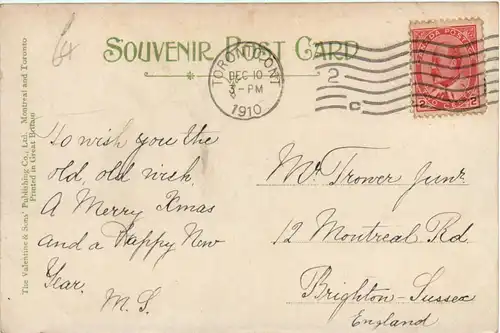 64
SOUVENIR POST CARD
TORONTO, ONT
DEC 10
- PM
1910
2
C
CANADA POSTAGE
2 2
TWO CENTS
The Valentine & Sons' Publishing Co., Ltd. Montreal and Toronto
Printed in Great Britain
To wish you the
old, old wish.
A Merry Xmas
and a Happy New
Year.
M. S.
Mr Trower Junr.
12 Montreal Rd.
Brighton - Sussex
England